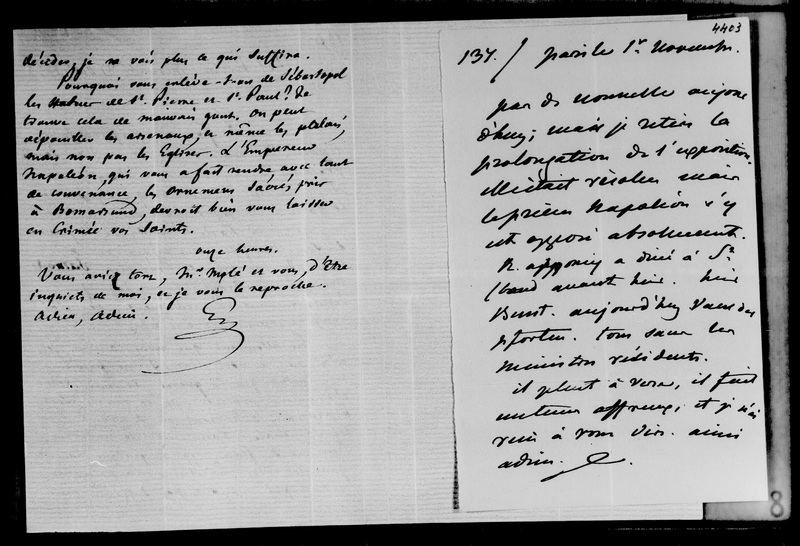 décédés, je ne vois plus ce qui suffira.
Pourquoi vous enlève-t-on de Sébastopol
les statues de St Pierre et St Paul? Je
trouve cela de mauvais goût. On peut
dépouiller les arsenaux, et même les palais,
mais non pas les Eglises. L'Empereur
Napoléon, qui vous a fait rendre, avec tant
de convenance, les ornemens sacrés pris
à Bomarsund, devroit bien vous laisser
en Crimée vos Saints.
onze heures.
Vous aviez tort, Mr Molé et vous, d'être
inquiets de moi, et je vous le reproche.
Adieu, Adieu.
4403
137. / paris le 1r Novembre.
pas de nouvelle aujour
d'huy; mais je retire la
prolongation de l'exposition.
elle était résolue mais
le prince Napoléon s'y
est opposé absolument.
R. appony a diné à St
Cloud avant hier. hier
Beust. aujourd'huy Van der
pforten. tous sauf les
ministres résidents.
il pleut à verse, il fait
un tems affreux, et je n'ai
rien à vous dire. ainsi
adieu.
8